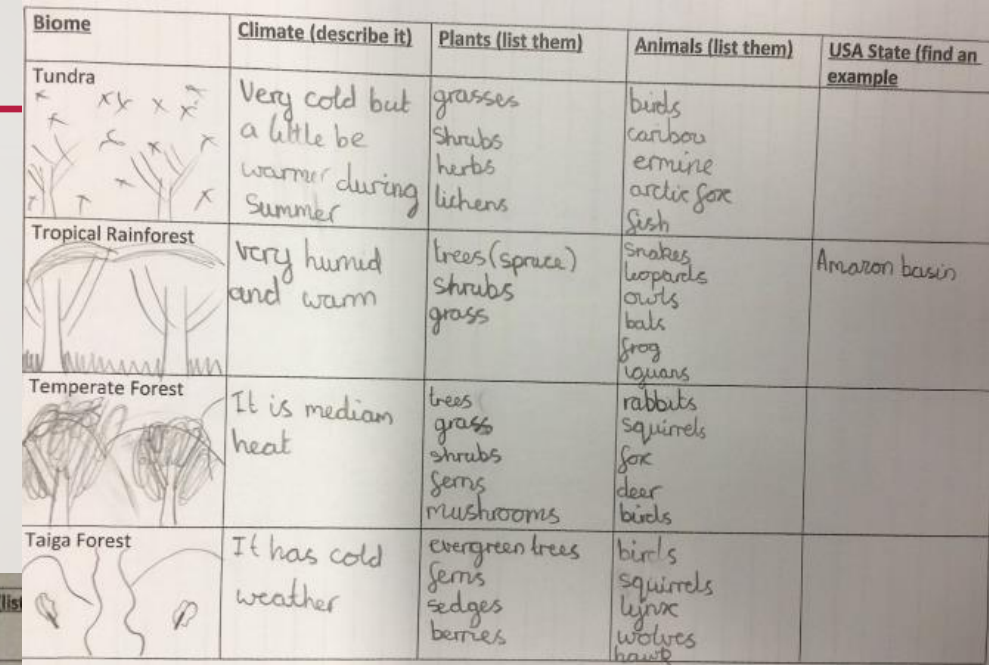 Biome
Climate (describe it)
Plants (list them)
Animals (list them)
USA State (find an
example
Tundra
Very cold but
a little be
warmer during
Summer
grasses
shrubs
herbs
lichens
birds
caribou
ermine
arctic fox
fish
Tropical Rainforest
very humid
and warm
trees (spruce)
shrubs
grass
snakes
leopards
owls
bats
frog
iguans
Amazon basin
Temperate Forest
It is mediam
heat
trees
grass
shrubs
ferns
mushrooms
rabbits
squirrels
fox
deer
birds
Taiga Forest
It has cold
weather
evergreen trees
ferns
sedges
berries
birds
squirrels
lynx
wolves
hawk